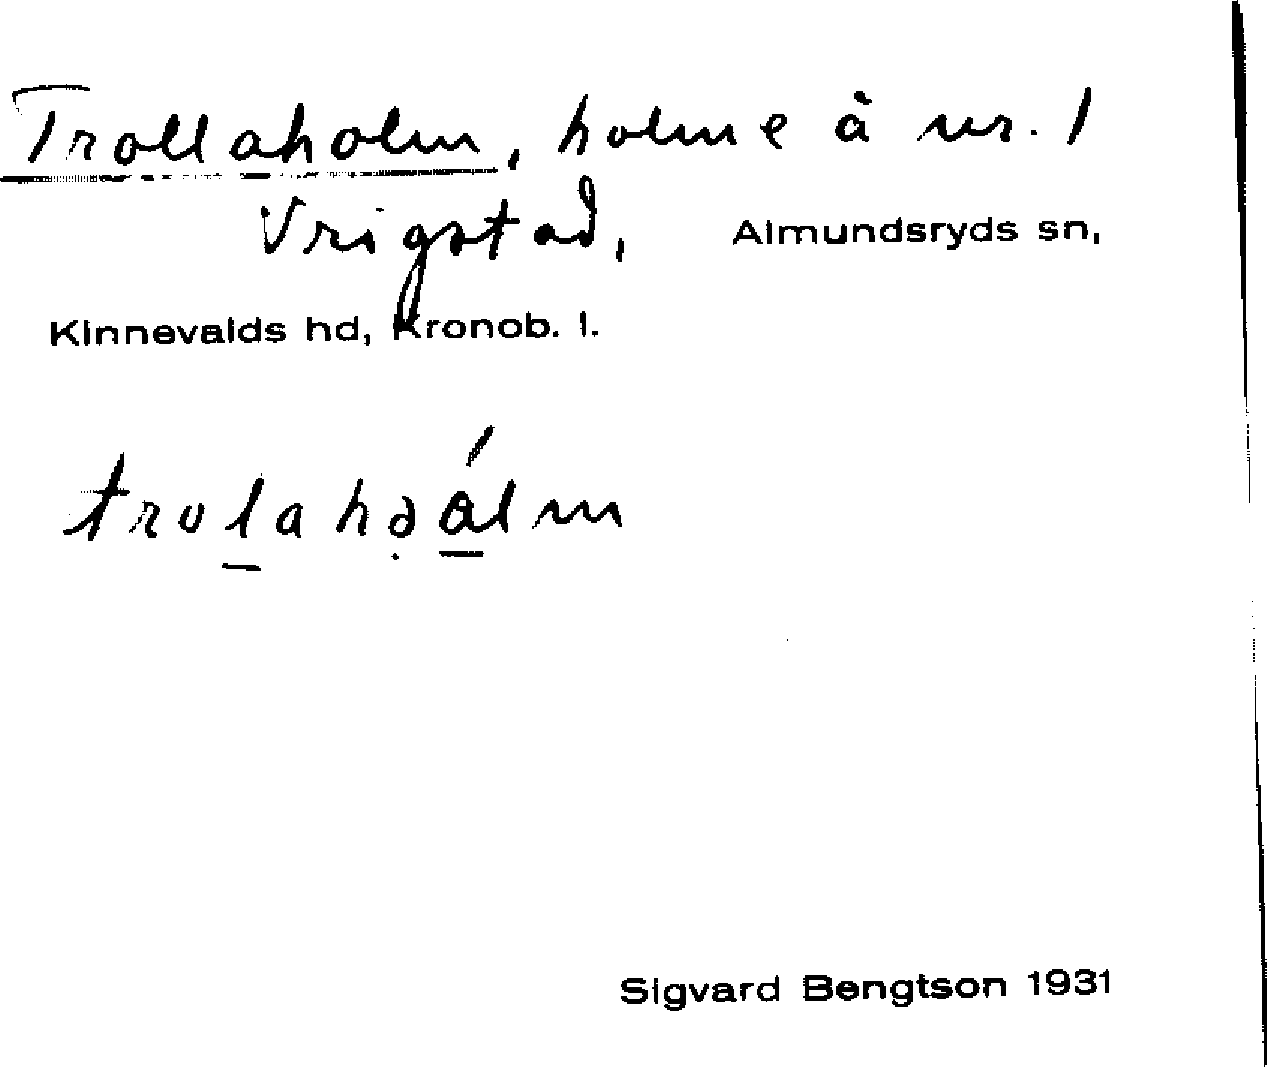 Trollaholm, holme å nr. 1
Vrigstad, Almundsryds sn,
Kinnevalds hd, Kronob. l.
Sigvard Bengtson 1931